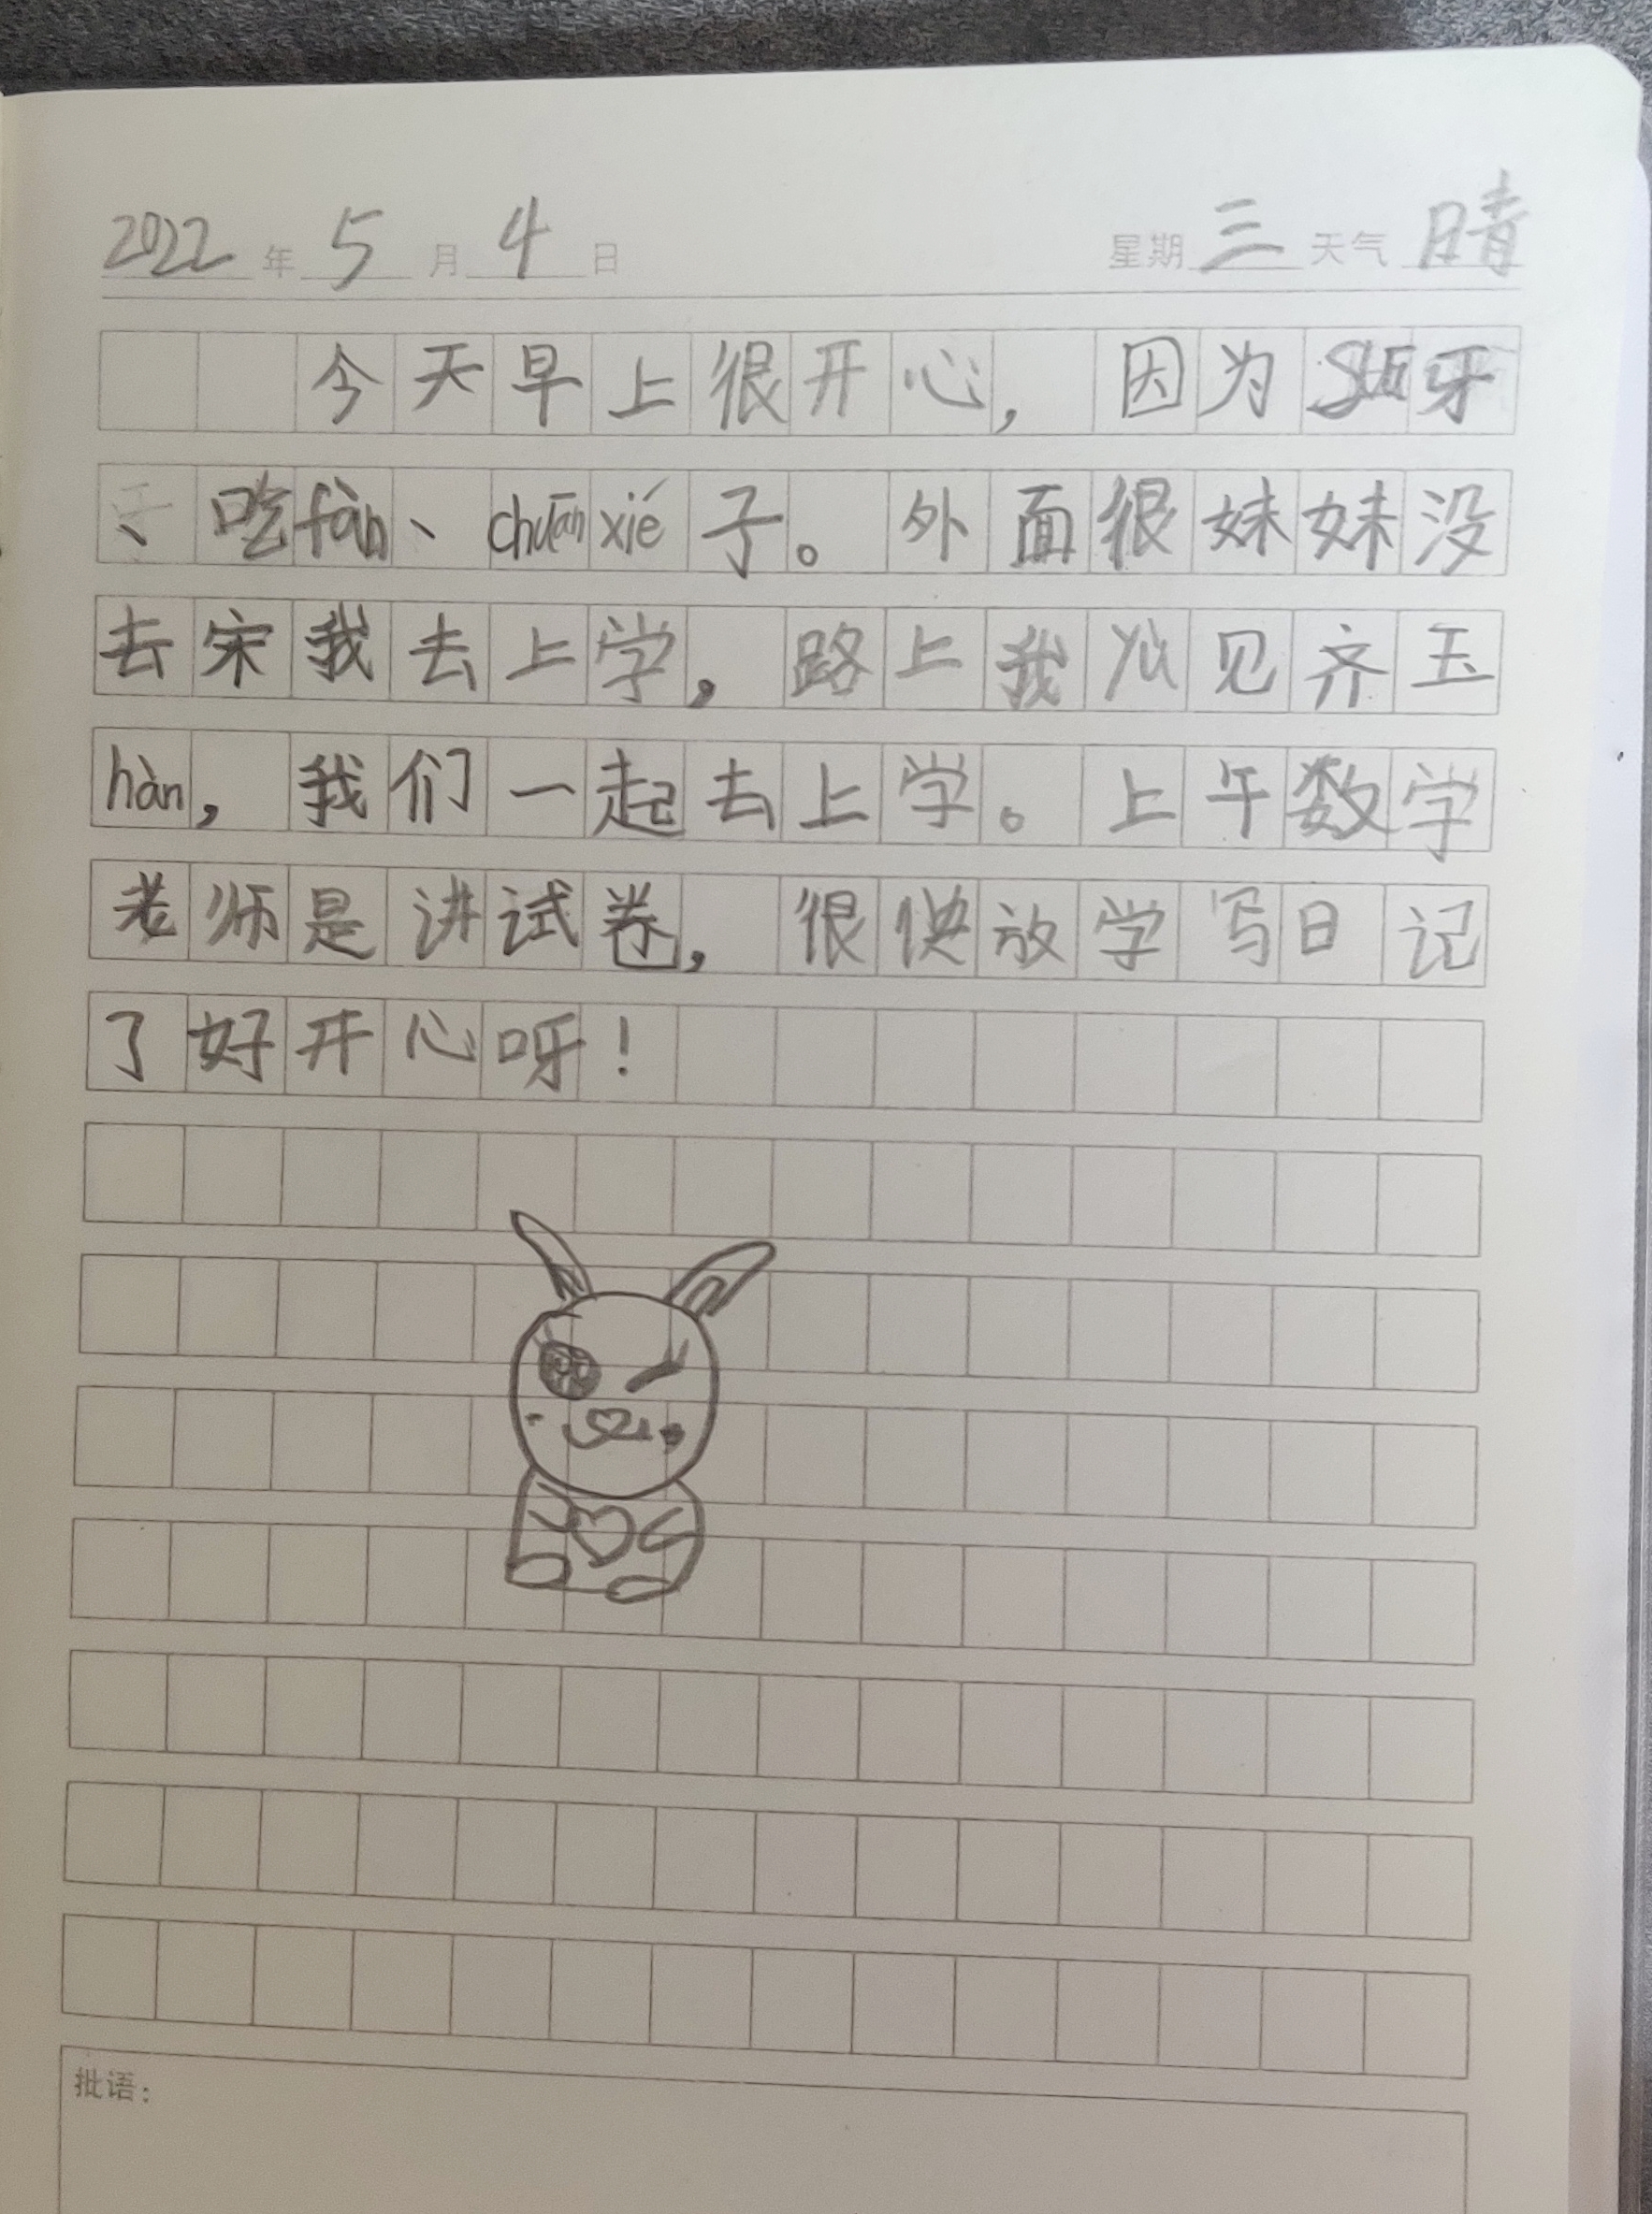 2022年5月4日 星期三 天气晴
今天早上很开心，因为 牙
、吃fàn、chuān xié子。外面很妹妹没
去宋我去上学，路上我 见齐玉
hàn，我们一起去上学。上午数学
老师是讲试卷，很快放学写日记
了好开心呀！
批语：